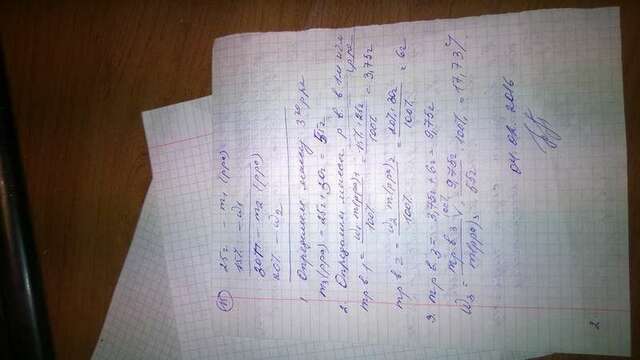 25г m₁ (рра)
15% - ω₁
30г - m₂ (рра)
20% - ω₂
1 Определим массу 3го рра
m₃(рра) = 25г + 30г = 55г
2 Определим массы р.в. в 1м и 2м рра
mр.в 1 = ω₁ · m(рра)₁ / 100% = 15% · 25г / 100% = 3,75г
mр.в 2 = ω₂ · m(рра)₂ / 100% = 20% · 30г / 100% = 6г
3. mр.в 3 = 3,75г + 6г = 9,75г
ω₃ = mр.в 3 · 100% / m(рра)₃ = 9,75г / 55г · 100% = 17,73%
04.02.2016
2